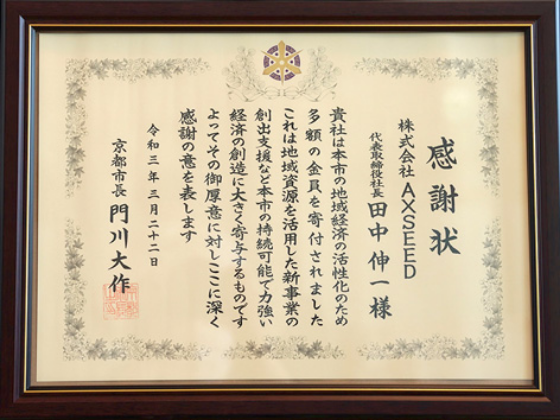 感謝状
株式会社 AXSEED
代表取締役社長 田中伸一様
貴社は本市の地域経済の活性化のため
多額の金員を寄付されました
これは地域資源を活用した新事業の
創出支援など本市の持続可能で力強い
経済の創造に大きく寄与するものです
よってその御厚意に対しここに深く
感謝の意を表します
令和三年三月二十二日
京都市長 門川大作